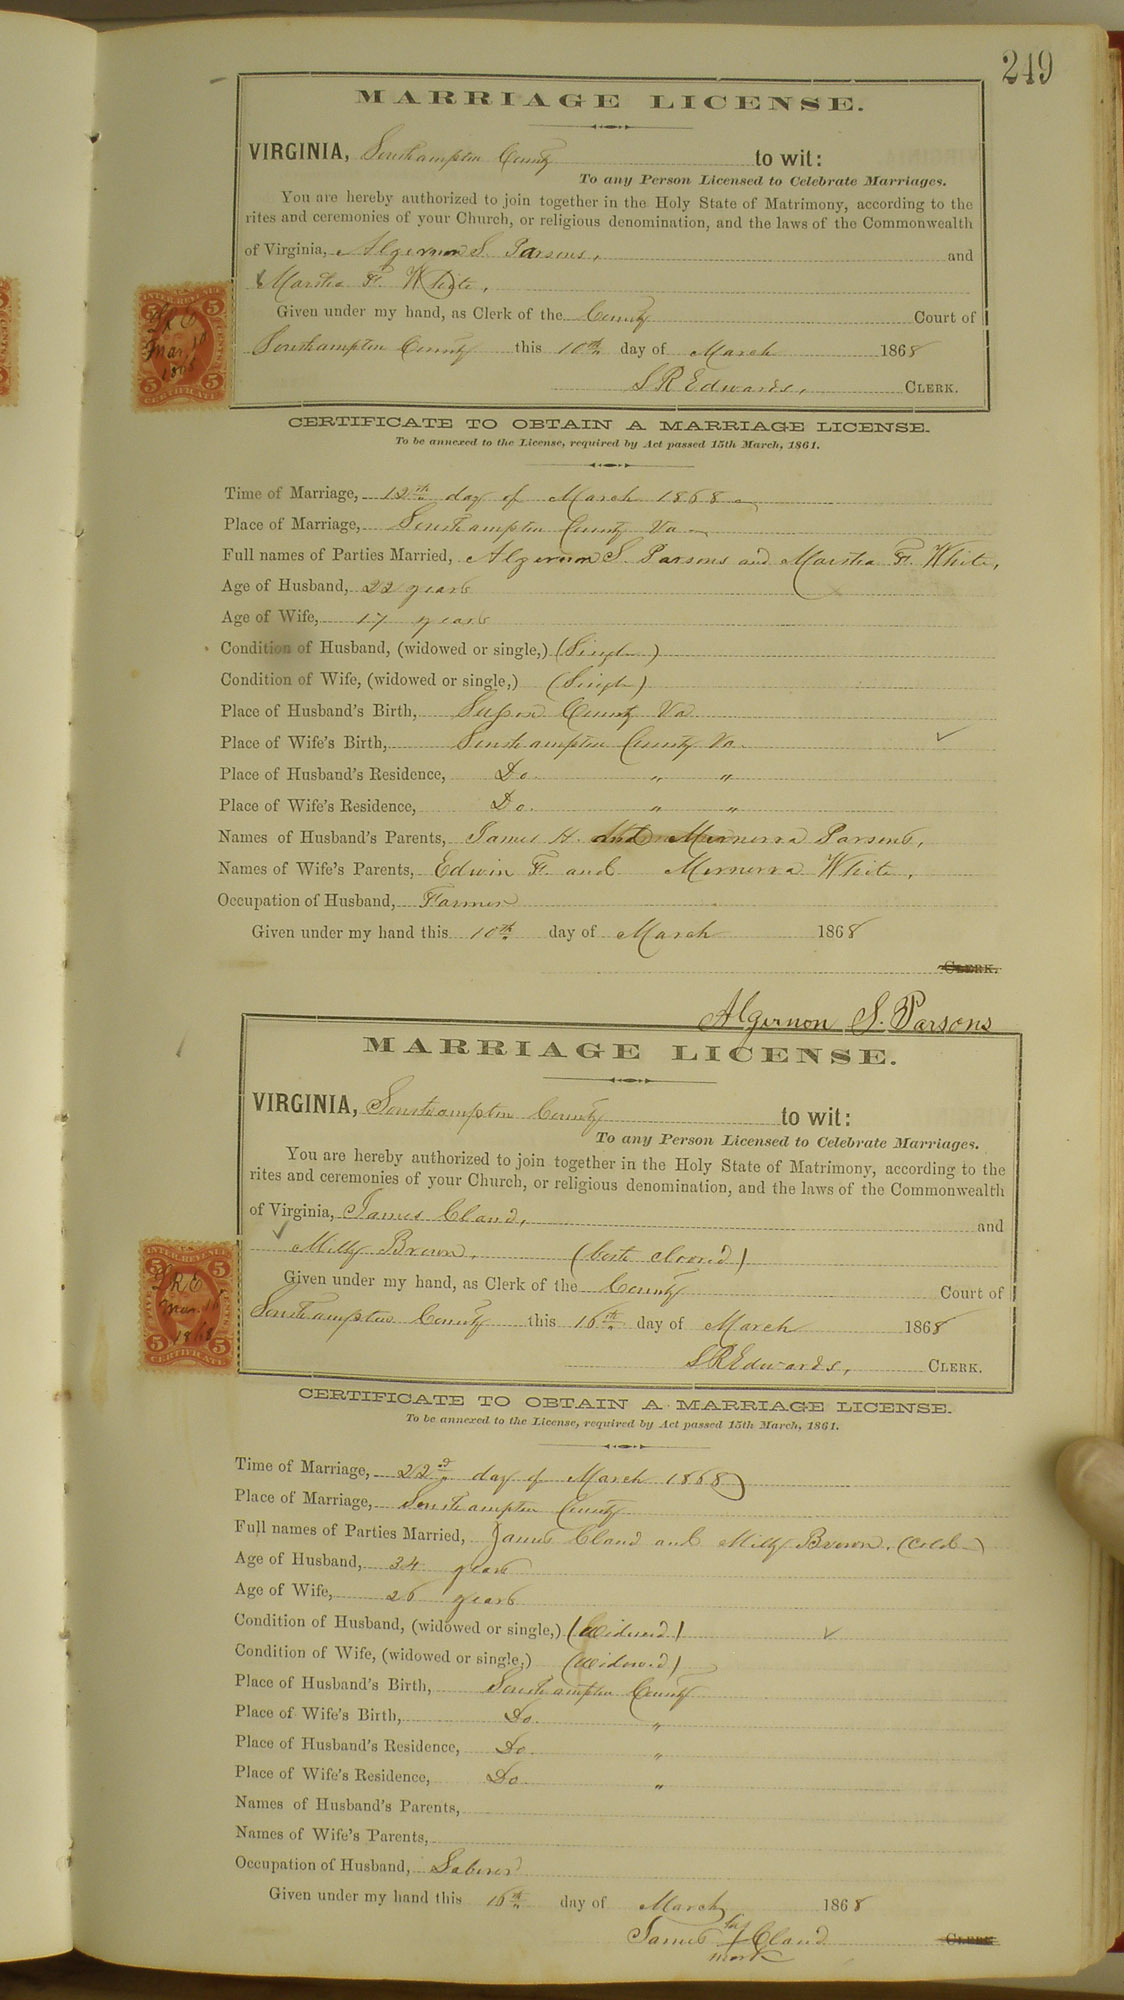 249
MARRIAGE LICENSE.
VIRGINIA, Southampton County to wit:
To any Person Licensed to Celebrate Marriages.
You are hereby authorized to join together in the Holy State of Matrimony, according to the
rites and ceremonies of your Church, or religious denomination, and the laws of the Commonwealth
of Virginia, Algernon S. Parsons, and
Martha F. White,
Given under my hand, as Clerk of the County Court of
Southampton County this 10th day of March 1868
S R Edwards, CLERK.
INTER. REVENUE
5 5
Mar. 10
1868
5 5
CERTIFICATE
CERTIFICATE TO OBTAIN A MARRIAGE LICENSE.
To be annexed to the License, required by Act passed 15th March, 1861.
Time of Marriage, 12th day of March 1868
Place of Marriage, Southampton County Va
Full names of Parties Married, Algernon S. Parsons and Martha F. White,
Age of Husband, 22 years
Age of Wife, 17 years
Condition of Husband, (widowed or single,) (Single)
Condition of Wife, (widowed or single,) (Single)
Place of Husband's Birth, Sussex County Va
Place of Wife's Birth, Southampton County Va.
Place of Husband's Residence, Do. " "
Place of Wife's Residence, Do. " "
Names of Husband's Parents, James H. and Minerva Parsons,
Names of Wife's Parents, Edwin F. and Minerva White,
Occupation of Husband, Farmer
Given under my hand this 10th day of March 1868
CLERK.
Algernon S. Parsons
MARRIAGE LICENSE.
VIRGINIA, Southampton County to wit:
To any Person Licensed to Celebrate Marriages.
You are hereby authorized to join together in the Holy State of Matrimony, according to the
rites and ceremonies of your Church, or religious denomination, and the laws of the Commonwealth
of Virginia, James Claud, and
Milly Brown, (both coloored)
Given under my hand, as Clerk of the County Court of
Southampton County this 16th day of March 1868
S R Edwards, CLERK.
INTER. REVENUE
5 5
S R E
Mar. 16
1868
5 5
CERTIFICATE
CERTIFICATE TO OBTAIN A MARRIAGE LICENSE.
To be annexed to the License, required by Act passed 15th March, 1861.
Time of Marriage, 22d day of March 1868
Place of Marriage, Southampton County
Full names of Parties Married, James Claud and Milly Brown, (Cold)
Age of Husband, 34 years
Age of Wife, 26 years
Condition of Husband, (widowed or single,) (Widowed)
Condition of Wife, (widowed or single,) (Widowed)
Place of Husband's Birth, Southampton County
Place of Wife's Birth, Do. "
Place of Husband's Residence, Do. "
Place of Wife's Residence, Do. "
Names of Husband's Parents,
Names of Wife's Parents,
Occupation of Husband, Laborer
Given under my hand this 16th day of March 1868
James his Claud CLERK
mark